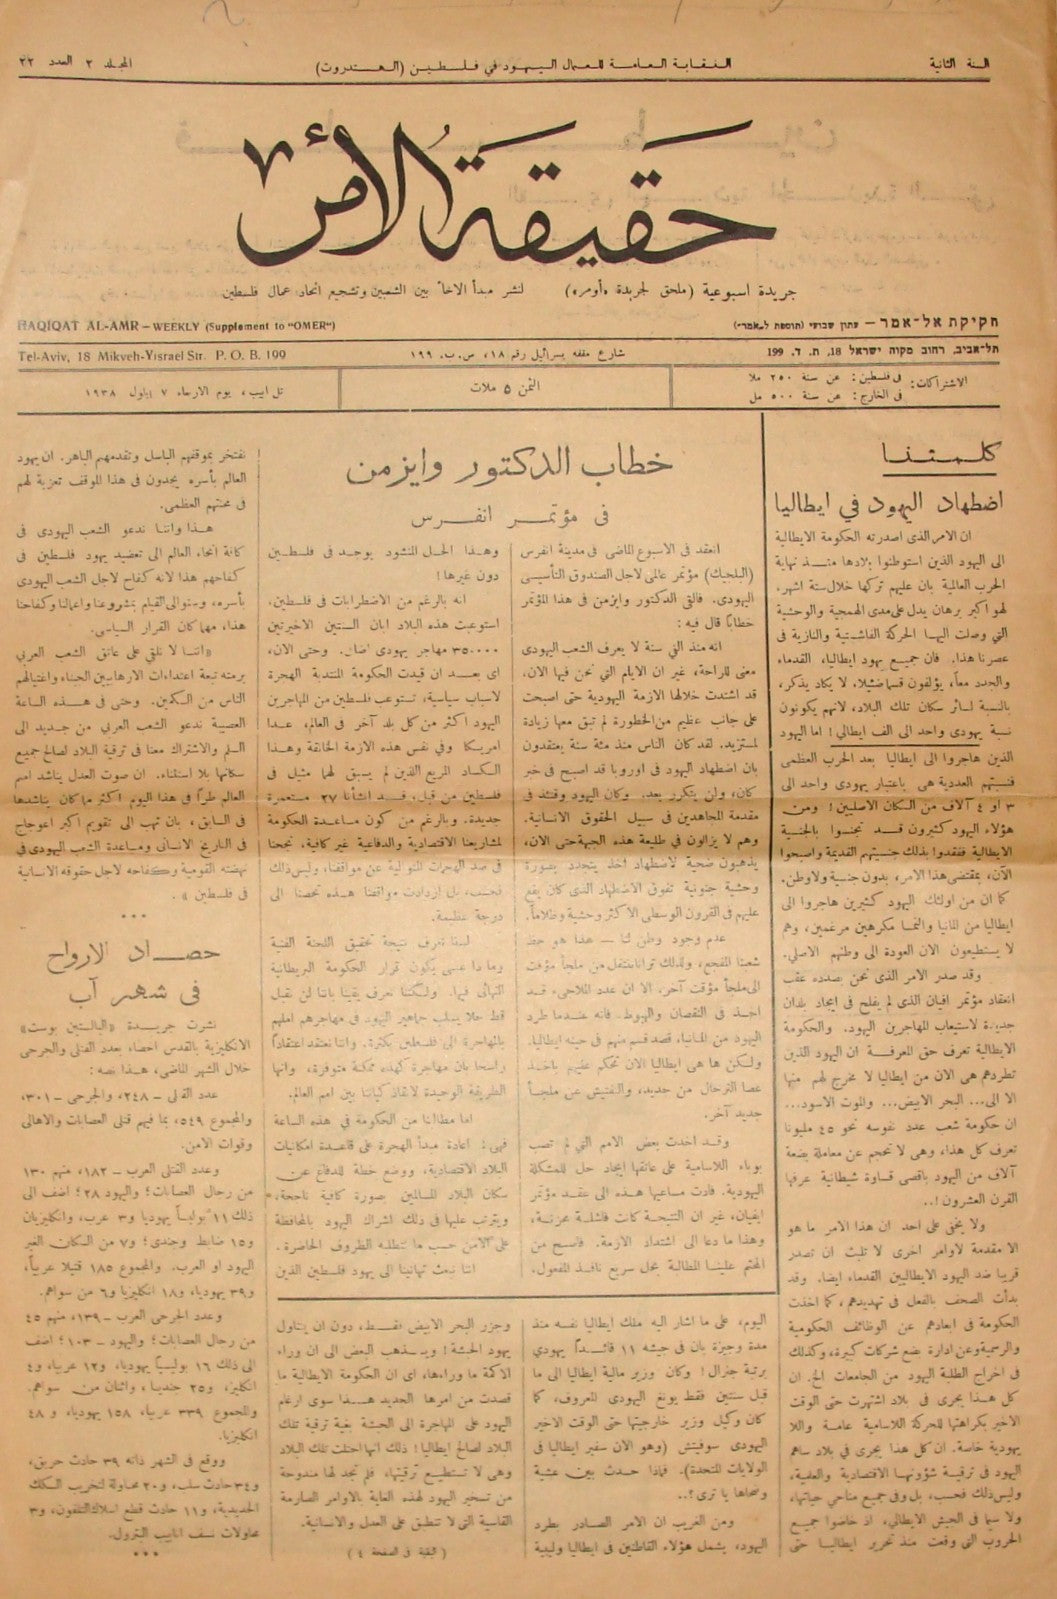 السنة الثانية
النقابة العامة للعمال اليهود في فلسطين (الهستدروت)
المجلد ٢ العدد ٢٢
حقيقة الأمر
جريدة اسبوعية (ملحق لجريدة «أومر») لنشر مبدأ الاخاء بين الشعبين وتشجيع اتحاد عمال فلسطين
HAQIQAT AL-AMR – WEEKLY (Supplement to "OMER")
חקיקת אל־אמר – עתון שבועי (תוספת ל„אמר")
Tel-Aviv, 18 Mikveh-Yisrael Str. P. O. B. 199
شارع مقفه يسرائيل رقم ١٨، ص.ب. ١٩٩
תל־אביב, רחוב מקוה ישראל 18, ת. ד. 199
الاشتراكات: في فلسطين: عن سنة ٢٥٠ ملا
في الخارج: عن سنة ٥٠٠ مل
الثمن ٥ ملات
تل ابيب، يوم الاربعاء ٧ ايلول ١٩٣٨
كلمتنا
اضطهاد اليهود في ايطاليا
ان الامر الذي اصدرته الحكومة الايطالية
الى اليهود الذين استوطنوا بلادها منذ نهاية
الحرب العالمية بان عليهم تركها خلال ستة اشهر.
لهو اكبر برهان يدل على مدى الهمجية والوحشية
التي وصلت اليها الحركة الفاشتية والنازية في
عصرنا هذا. فان جميع يهود ايطاليا، القدماء
والجدد معاً، يؤلفون قسما ضئيلا، لا يكاد يذكر،
بالنسبة لسائر سكان تلك البلاد، لانهم يكونون
نسبة يهودي واحد الى الف ايطالي! اما اليهود
الذين هاجروا الى ايطاليا بعد الحرب العظمى
فنسبتهم العددية هي باعتبار يهودي واحد الى
٣ او ٤ آلاف من السكان الاصليين! ومن
هؤلاء اليهود كثيرون قد تجنسوا بالجنسية
الايطالية ففقدوا بذلك جنسيتهم القديمة واصبحوا
الآن، بمقتضى هذا الامر، بدون جنسية ولا وطن.
كما ان من اولئك اليهود كثيرين هاجروا الى
ايطاليا من المانيا والنمسا مكرهين مرغمين، وهم
لا يستطيعون الان العودة الى وطنهم الاصلي.
وقد صدر الامر الذي نحن بصدده عقب
انعقاد مؤتمر افيان الذي لم يفلح في ايجاد بلدان
جديدة لاستيعاب المهاجرين اليهود. والحكومة
الايطالية تعرف حق المعرفة ان اليهود الذين
تطردهم هي الان من ايطاليا لا مخرج لهم منها
الا الى... البحر الابيض... والموت الاسود...
ان حكومة شعب عدد نفوسه نحو ٤٥ مليونا
تعرف كل هذا، وهي لا تحجم عن معاملة بضعة
آلاف من اليهود باقصى قساوة شيطانية عرفها
القرن العشرون!..
ولا يخفى على احد ان هذا الامر ما هو
الا مقدمة لاوامر اخرى لا تلبث ان تصدر
قريبا ضد اليهود الايطاليين القدماء ايضا. وقد
بدأت الصحف بالفعل في تهديدهم، كما اخذت
الحكومة في ابعادهم عن الوظائف الحكومية
والرسمية وعن ادارة بضع شركات كبيرة، وكذلك
في اخراج الطلبة اليهود من الجامعات الخ. ان
كل هذا يجري في بلاد اشتهرت حتى الوقت
الاخير بكراهتها للحركة اللاسامية عامة واللا
يهودية خاصة. ان كل هذا يجري في بلاد ساهم
اليهود في ترقية شؤونها الاقتصادية والعلمية،
وليس ذلك فحسب، بل وفي جميع مناحي حياتها،
ولا سيما في الجيش الايطالي، اذ خاضوا جميع
الحروب التي وقعت منذ تحرير ايطاليا حتى
خطاب الدكتور وايزمن
في مؤتمر انفرس
انعقد في الاسبوع الماضي في مدينة انفرس
(البلجيك) مؤتمر عالمي لاجل الصندوق التأسيسي
اليهودي. فالقى الدكتور وايزمن في هذا المؤتمر
خطابا قال فيه:
انه منذ التي سنة لا يعرف الشعب اليهودي
معنى للراحة، غير ان الايام التي نحن فيها الان،
قد اشتدت خلالها الازمة اليهودية حتى اصبحت
على جانب عظيم من الخطورة لم تبق معها زيادة
لمستزيد. لقد كان الناس منذ مئة سنة يعتقدون
بان اضطهاد اليهود في اوروبا قد اصبح في خبر
كان، ولن يتكرر بعد. وكان اليهود وقتئذ في
مقدمة المجاهدين في سبيل الحقوق الانسانية.
وهم لا يزالون في طليعة هذه الجبهة حتى الان،
يذهبون ضحية لاضطهاد اخذ يتجدد بصورة
وحشية جنونية تفوق الاضطهاد الذي كان يقع
عليهم في القرون الوسطى الاكثر وحشية وظلاماً.
عدم وجود وطن لنا – هذا هو حظ
شعبنا المفجع، ولذلك ترانا ننتقل من ملجأ مؤقت
الى ملجأ مؤقت آخر. الا ان عدد الملاجيء قد
اخذ في النقصان والهبوط. فانه عندما طرد
اليهود من المانيا، قصد قسم منهم في حينه ايطاليا.
ولكن ها هي ايطاليا الان تحكم عليهم باخذ
عصا الترحال من جديد، والتفتيش عن ملجأ
جديد آخر.
وقد اخذت بعض الامم التي لم تصب
بوباء اللاسامية على عاتقها ايجاد حل للمشكلة
اليهودية. فادت مساعيها هذه الى عقد مؤتمر
ايفيان، غير ان النتيجة كانت فاشلة محزنة،
وهذا ما دعا الى اشتداد الازمة. فاصبح من
المحتم علينا المطالبة بحل سريع نافذ المفعول،
وهذا الحل المنشود يوجد في فلسطين
دون غيرها!
انه بالرغم من الاضطرابات في فلسطين،
استوعبت هذه البلاد ابان السنتين الاخيرتين
٣٥٠٠٠ مهاجر يهودي اضافي. وحتى الآن،
اي بعد ان قيدت الحكومة المنتدبة الهجرة
لاسباب سياسية، تستوعب فلسطين من المهاجرين
اليهود اكثر من كل بلد آخر في العالم، عدا
امريكا. وفي نفس هذه الازمة الخانقة وهذا
الكساد المريع الذين لم يسبق لهما مثيل في
فلسطين من قبل، قد انشأنا ٢٧ مستعمرة
جديدة. وبالرغم من كون مساعدة الحكومة
لمشاريعنا الاقتصادية والدفاعية غير كافية، نجحنا
في صد الهجمات المتوالية عن مواقفنا، وليس ذلك
فحسب، بل ازدادت مواقفنا هذه تحصنا الى
درجة عظيمة.
لسنا نعرف نتيجة تحقيق اللجنة الفنية
وما ذا عسى يكون قرار الحكومة البريطانية
النهائي فيها. ولكننا نعرف يقينا باننا لن نقبل
قط حلا يسلب جماهير اليهود في مهاجرهم املهم
بالمهاجرة الى فلسطين بكثرة. واننا نعتقد اعتقاداً
راسخا بان مهاجرة كهذه ممكنة متوفرة، وانها
الطريقة الوحيدة لانقاذ كياننا بين امم العالم.
اما مطالبنا من الحكومة في هذه الساعة
فهي: اعادة مبدأ الهجرة على قاعدة امكانيات
البلاد الاقتصادية، ووضع خطة للدفاع عن
سكان البلاد المسالمين بصورة كافية ناجحة.
ويترتب عليها في ذلك اشراك اليهود بالمحافظة
على الامن حسب ما تتطلبه الظروف الحاضرة.
اننا نبعث تهانينا الى يهود فلسطين الذين
نفتخر بموقفهم الباسل وتقدمهم الباهر. ان يهود
العالم بأسره يجدون في هذا الموقف تعزية لهم
في محنتهم العظمى.
هذا واننا ندعو الشعب اليهودي في
كافة انحاء العالم الى تعضيد يهود فلسطين في
كفاحهم هذا لانه كفاح لاجل الشعب اليهودي
بأسره، وسنوالي القيام بمشروعنا واعمالنا وكفاحنا
هذا، مهما كان القرار السياسي.
«اننا لا نلقي على عاتق الشعب العربي
برمته تبعة اعتداءات الارهابيين الجبناء واغتيالهم
الناس من المكمن. وحتى في هذه الساعة
العصيبة ندعو الشعب العربي من جديد الى
السلم والاشتراك معنا في ترقية البلاد لصالح جميع
سكانها بلا استثناء. ان صوت العدل يناشد امم
العالم طراً في هذا اليوم اكثر مما كان يناشدها
في السابق، بان تهب الى تقويم اكبر اعوجاج
في التاريخ الانساني ومساعدة الشعب اليهودي في
نهضته القومية وكفاحه لاجل حقوقه الانسانية
في فلسطين».
***
حصاد الارواح
في شهر آب
نشرت جريدة «البالستين بوست»
الانكليزية بالقدس احصاء بعدد القتلى والجرحى
خلال الشهر الماضي، هذا نصه:
عدد القتلى – ٢٤٨، والجرحى – ٣٠١،
والمجموع ٥٤٩، بما فيهم قتلى العصابات والاهالي
وقوات الامن.
وعدد القتلى العرب – ١٨٢، منهم ١٣٠
من رجال العصابات؛ واليهود ٢٨؛ اضف الى
ذلك ١١ بوليسا يهوديا و٣ عرب، وانكليزيان
و١٥ ضابط وجندي؛ و٧ من السكان الغير
اليهود او العرب. والمجموع ١٨٥ قتيلا عربياً،
و٣٩ يهوديا، و١٨ انكليزيا و٦ من سواهم.
وعدد الجرحى العرب – ١٣٩، منهم ٤٥
من رجال العصابات؛ واليهود – ١٠٣؛ اضف
الى ذلك ١٦ بوليسياً يهوديا، و١٢ عربيا، و٤
انكليز، و٢٥ جنديا، واثنان من سواهم.
والمجموع ٣٣٩ عربيا، ١٥٨ يهوديا، و ٤٨
انكليزيا.
ووقع في الشهر ذاته ٣٩ حادث حريق،
و٣٤ حادث سلب، و٢٠ محاولة لتخريب السكك
الحديدية، و١١ حادث قطع اسلاك التلفون، و٣
محاولات نسف انابيب البترول.
***
اليوم، على ما اشار اليه ملك ايطاليا نفسه منذ
مدة وجيزة بان في جيشه ١١ قائداً يهودي
برتبة جنرال! وكان وزير مالية ايطاليا الى ما
قبل سنتين فقط يونغ اليهودي المعروف، كما
كان وكيل وزير خارجيتها حتى الوقت الاخير
اليهودي سوفيتش (وهو الان سفير ايطاليا في
الولايات المتحدة). فماذا حدث بين عشية
وضحاها يا ترى؟..
ومن الغريب ان الامر الصادر بطرد
اليهود، يشمل هؤلاء القاطنين في ايطاليا وليبية
وجزر البحر الابيض فقط، دون ان يتناول
يهود الحبشة! ويذهب البعض الى ان وراء
الاكمة ما وراءها، اي ان الحكومة الايطالية ما
قصدت من امرها الجديد هذا سوى ارغام
اليهود على المهاجرة الى الحبشة بغية ترقية تلك
البلاد لصالح ايطاليا! ذلك انها احتلت تلك البلاد
وهي لا تستطيع ترقيتها، فلم تجد لها مندوحة
من تسخير اليهود لهذه الغاية بالاوامر الصارمة
القاسية التي لا تنطبق على العدل والانسانية.
(البقية في الصفحة ٤)